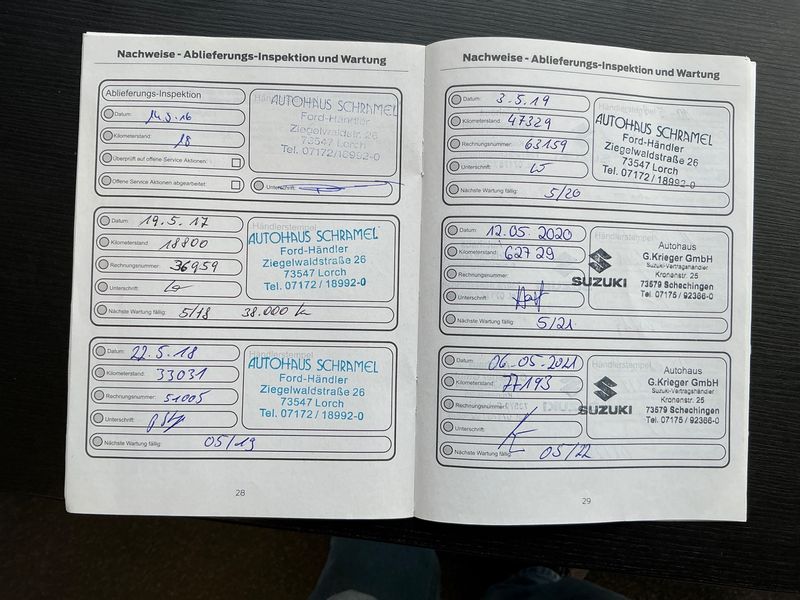 Nachweise - Ablieferungs-Inspektion und Wartung
Ablieferungs-Inspektion
Datum:
16
Kilometerstand:
18
Überprüft auf offene Service Aktionen:
Offene Service Aktionen abgearbeitet:
AUTOHAUS SCHRAMEL
Ford-Händler
Ziegelwaldstr. 26
73547 Lorch
Tel. 07172/18992-0
Unterschrift:
Datum: 19.5.17
Kilometerstand 18800
Rechnungsnummer: 36959
Unterschrift:
Nächste Wartung fällig: 5/18 38.000 km
Händlerstempel
AUTOHAUS SCHRAMEL
Ford-Händler
Ziegelwaldstraße 26
73547 Lorch
Tel. 07172 / 18992-0
Datum: 22.5.18
Kilometerstand: 33031
Rechnungsnummer: 51005
Unterschrift:
Nächste Wartung fällig: 05/19
Händlerstempel
AUTOHAUS SCHRAMEL
Ford-Händler
Ziegelwaldstraße 26
73547 Lorch
Tel. 07172 / 18992-0
28
Nachweise - Ablieferungs-Inspektion und Wartung
Datum: 3.5.19
Kilometerstand: 47329
Rechnungsnummer: 63159
Unterschrift:
Nächste Wartung fällig: 5/20
AUTOHAUS SCHRAMEL
Ford-Händler
Ziegelwaldstraße 26
73547 Lorch
Tel. 07172 / 18992-0
Datum: 12.05.2020
Kilometerstand: 62729
Rechnungsnummer:
Unterschrift:
Nächste Wartung fällig: 5/21
SUZUKI
Autohaus
G.Krieger GmbH
Suzuki-Vertragshändler
Kronenstr. 25
73579 Schechingen
Tel. 07175 / 92366-0
Datum: 06.05.2021
Kilometerstand: 77193
Rechnungsnummer:
Unterschrift:
Nächste Wartung fällig: 05/22
Händlerstempel
SUZUKI
Autohaus
G.Krieger GmbH
Suzuki-Vertragshändler
Kronenstr. 25
73579 Schechingen
Tel. 07175 / 92366-0
29